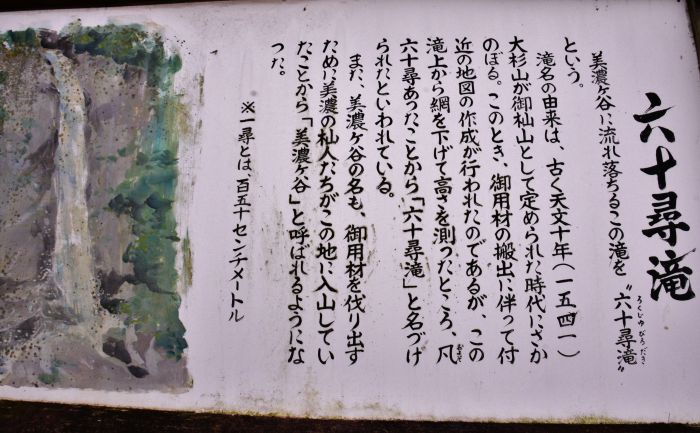 六十尋滝
美濃ヶ谷に流れ落ちるこの滝を〝六十尋滝〟
ろくじゅ びろ だき
という。
滝名の由来は、古く天文十年(一五四一)
大杉山が御杣山として定められた時代にさか
のぼる。このとき、御用材の搬出に伴って付
近の地図の作成が行われたのであるが、この
滝上から綱を下げて高さを測ったところ、凡
およそ
六十尋あったことから「六十尋滝」と名づけ
られたといわれている。
また、美濃ヶ谷の名も、御用材を伐り出す
ために美濃の杣人たちがこの地に入山してい
たことから「美濃ヶ谷」と呼ばれるようにな
った。
※一尋とは、百五十センチメートル